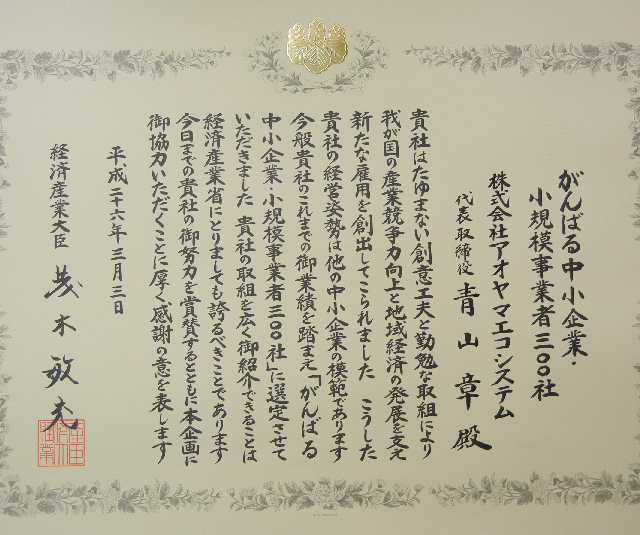 がんばる中小企業・
小規模事業者三〇〇社
株式会社アオヤマエコシステム
代表取締役 青山章殿
貴社はたゆまない創意工夫と勤勉な取組により
我が国の産業競争力向上と地域経済の発展を支え
新たな雇用を創出してこられました こうした
貴社の経営姿勢は他の中小企業の模範であります
今般貴社のこれまでの御業績を踏まえ「がんばる
中小企業・小規模事業者三〇〇社」に選定させて
いただきました 貴社の取組を広く御紹介できることは
経済産業省にとりましても誇るべきことであります
今日までの貴社の御努力を賞賛するとともに本企画に
御協力いただくことに厚く感謝の意を表します
平成二十六年三月三日
経済産業大臣 茂木敏充